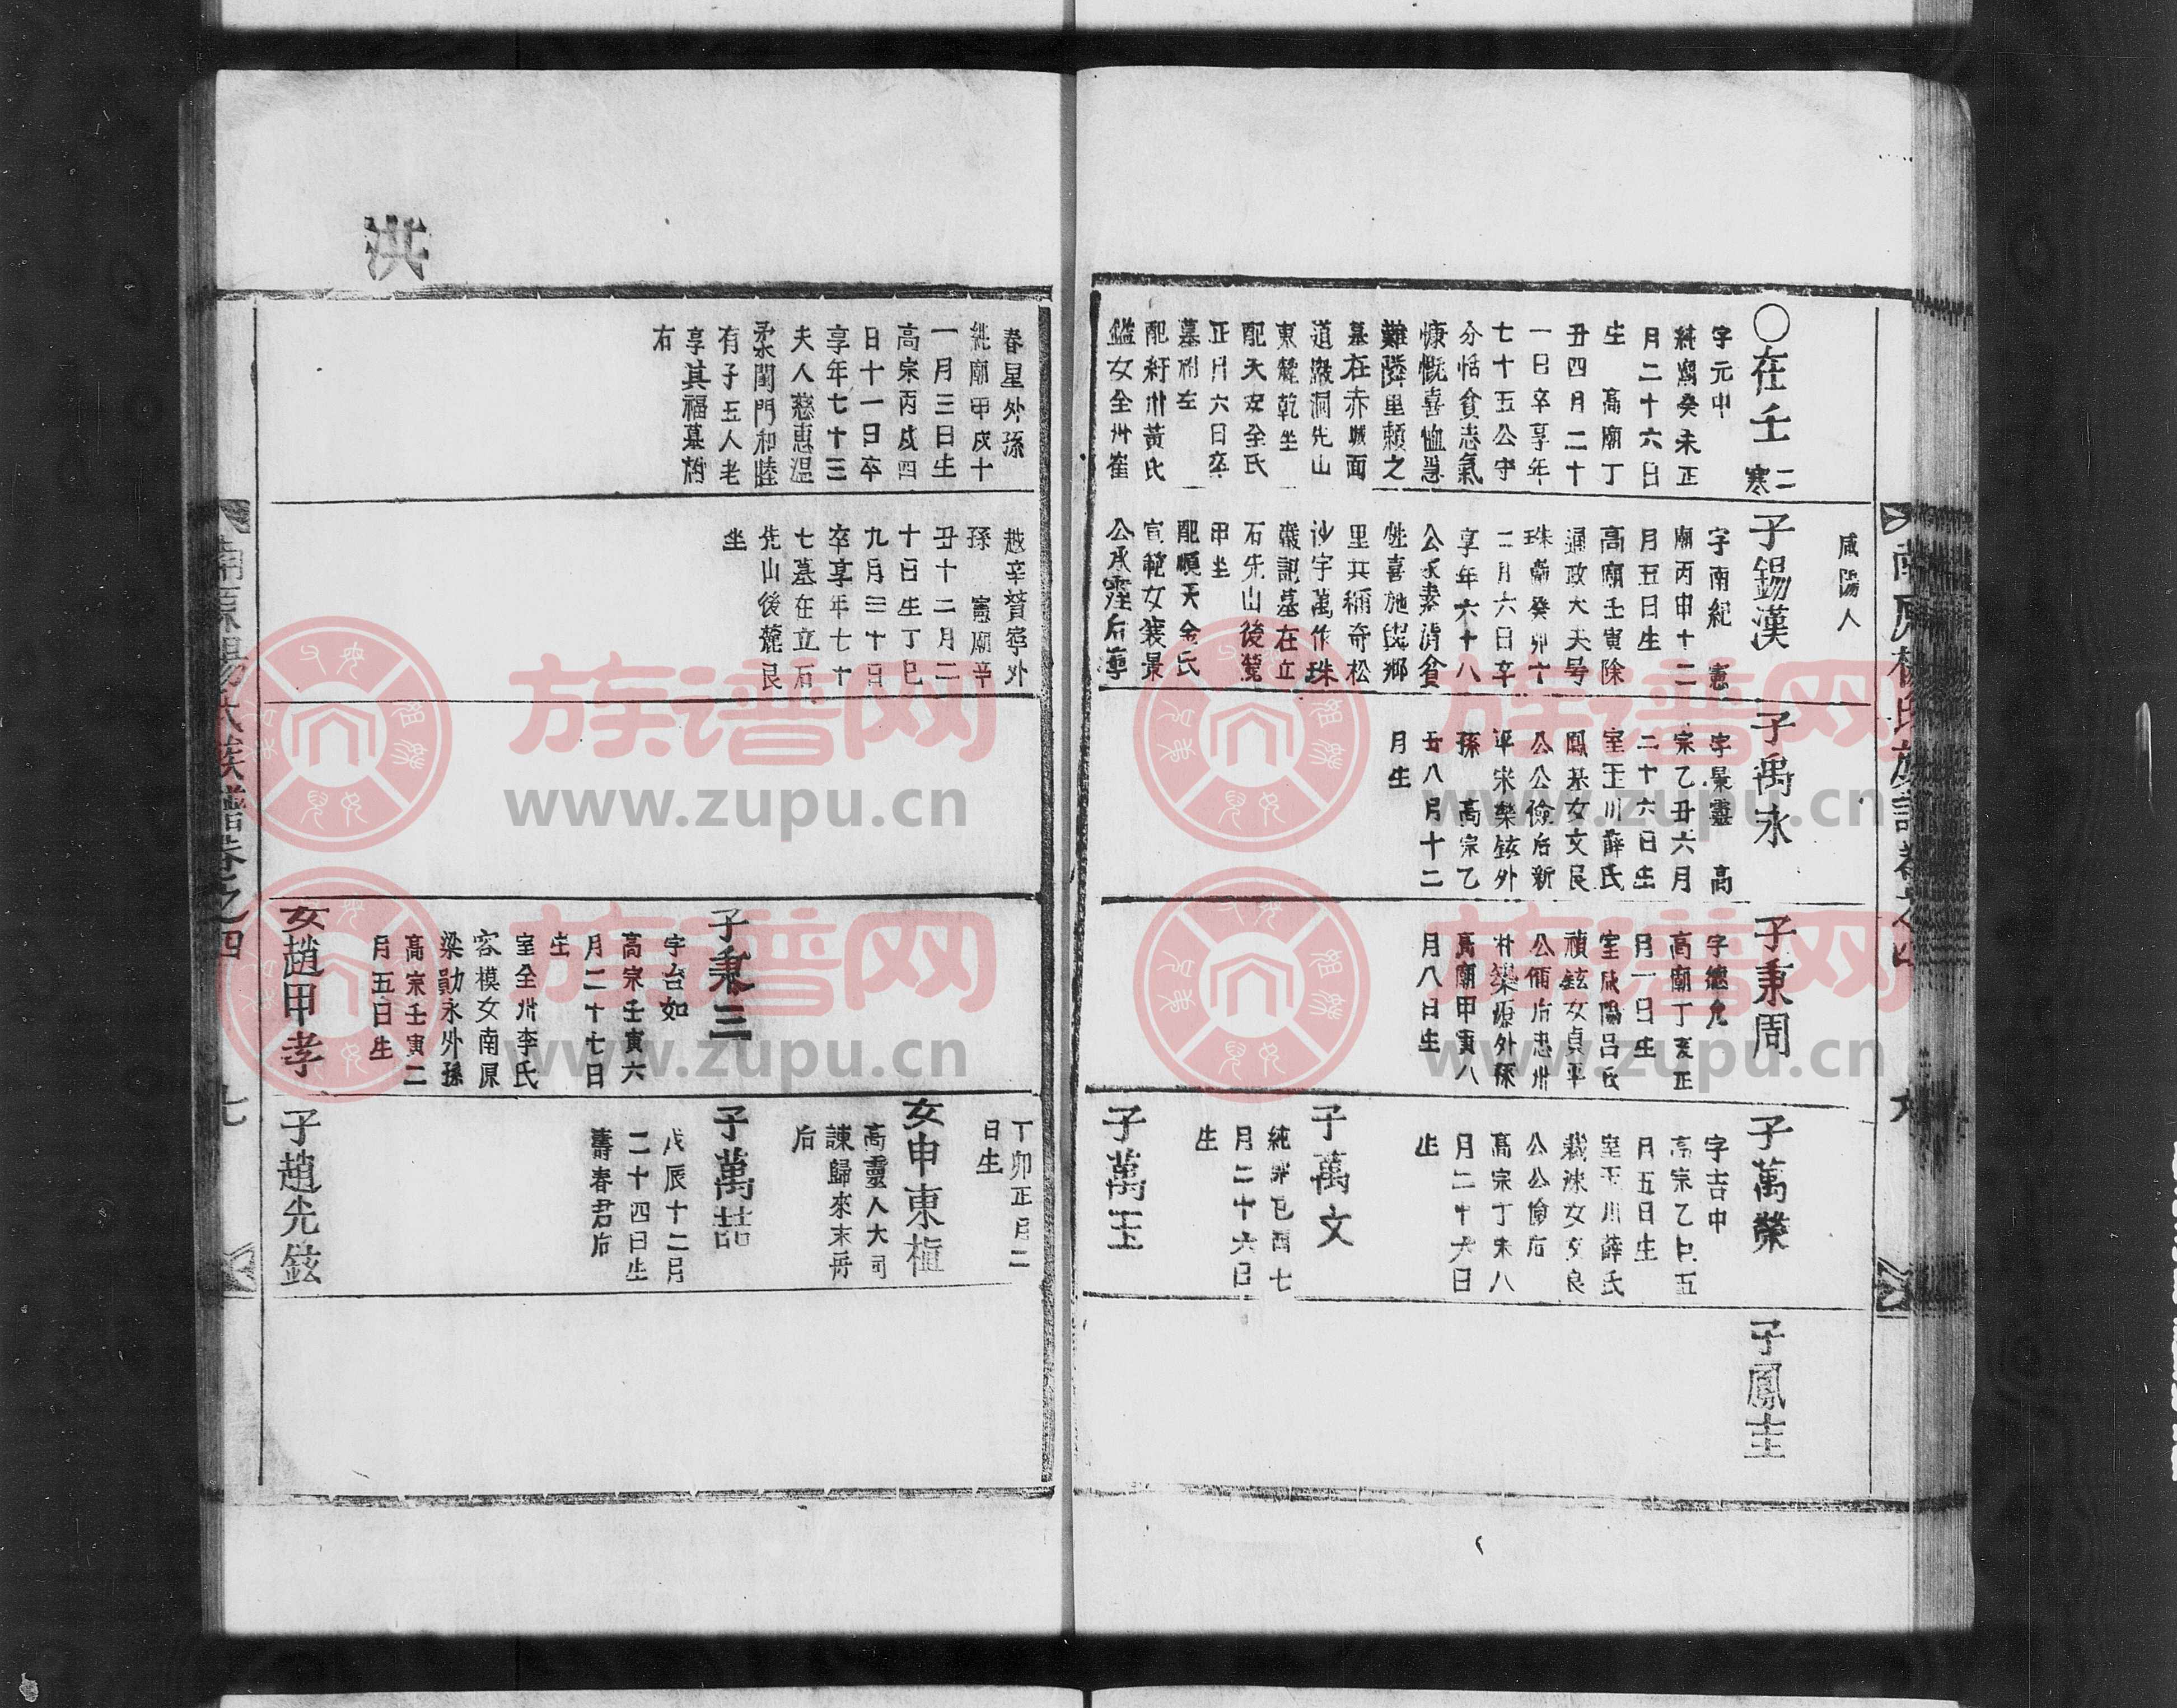 南原楊氏族譜卷之四
咸陽人
○在壬
二
寒
字元中
純廟癸未正
月二十六日
生 高廟丁
丑四月二十
一日卒享年
七十五公守
分恬貧志氣
慷慨喜恤急
難隣里頼之
墓在赤城面
道激洞先山
東麓乾坐
配天安全氏
正月六日卒
墓祔左
配紆州黃氏
鑑女全州崔
子錫漢
字南紀 憲
廟丙申十二
月五日生
高廟壬寅除
通政大夫号
珠 癸卯十
二月六日卒
享年六十八
公永素清貧
性喜施與鄉
里共稱奇松
沙宇萬作珠
巖記墓在立
石先山後麓
甲坐
配順天金氏
宣範女襄景
公承霔后
子禹永
字景靈 高
宗乙丑六月
二十六日生
室玉川薛氏
鳳基女文良
公公儉后新
平宋樂鉉外
孫 高宗乙
丑八月十二
月生
子秉周
字德允
高廟丁亥正
月一日生
室咸陽呂氏
禎鉉女貞平
公偁后忠州
朴樂源外孫
高廟甲寅八
月八日生
子萬榮
字吉中
高宗乙巳五
月五日生
室玉川薛氏
裁洙女文良
公公儉后
高宗丁未八
月二十六日
生
子萬文
純宗己酉七
月二十六日
生
子萬玉
子鳳圭
洪
春星外孫
純廟甲戌十
一月三日生
高宗丙戌四
日十一日卒
享年七十三
夫人慈惠溫
柔閨門和睦
有子五人老
享其福墓祔
右
越辛贊寧外
孫 憲廟辛
丑十二月二
十日生丁巳
九月三十日
卒享年七十
七墓在立石
先山後麓艮
坐
子秉三
字台如
高宗壬寅六
月二十七日
生
室全州李氏
容模女南原
梁勛永外孫
高宗壬寅二
月五日生
女趙甲孝
丁卯正月二
日生
女申東植
高靈人大司
諫歸來末舟
后
子萬喆
戊辰十二月
二十四日生
壽春君后
子趙光鉉
南原楊氏族譜卷之四
七
族谱网
www.zupu.cn
族谱网
www.zupu.cn
族谱网
www.zupu.cn
族谱网
www.zupu.cn